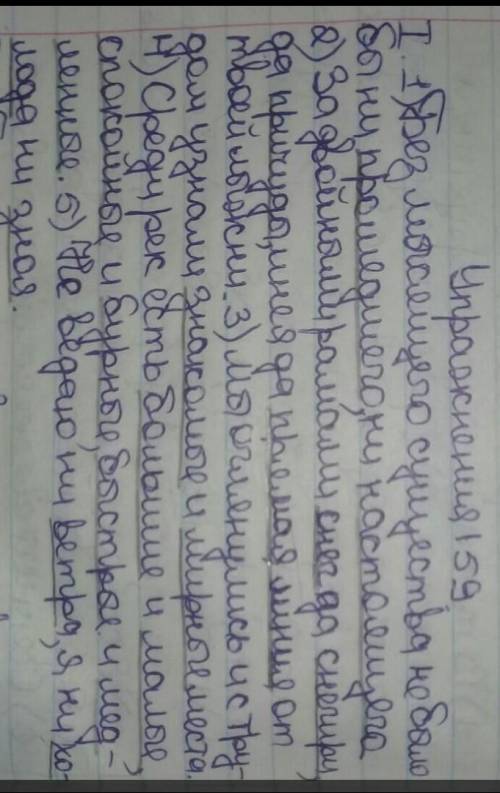 Упражнения 159
I. 1) Без мыслящего существа не было
бы ни прошедшего, ни настоящего
2) За двойными рамами снег да снегири,
да причуды, инея да прямая линия от
твоей лыжни. 3) Мы оглянулись и с тру-
дом узнали знакомые и мирные места.
4) Среди рек есть большие и малые,
спокойные и бурные, быстрые и мед-
ленные. 5) Не ведаю ни ветра, я ни хо-
лода ни зноя.